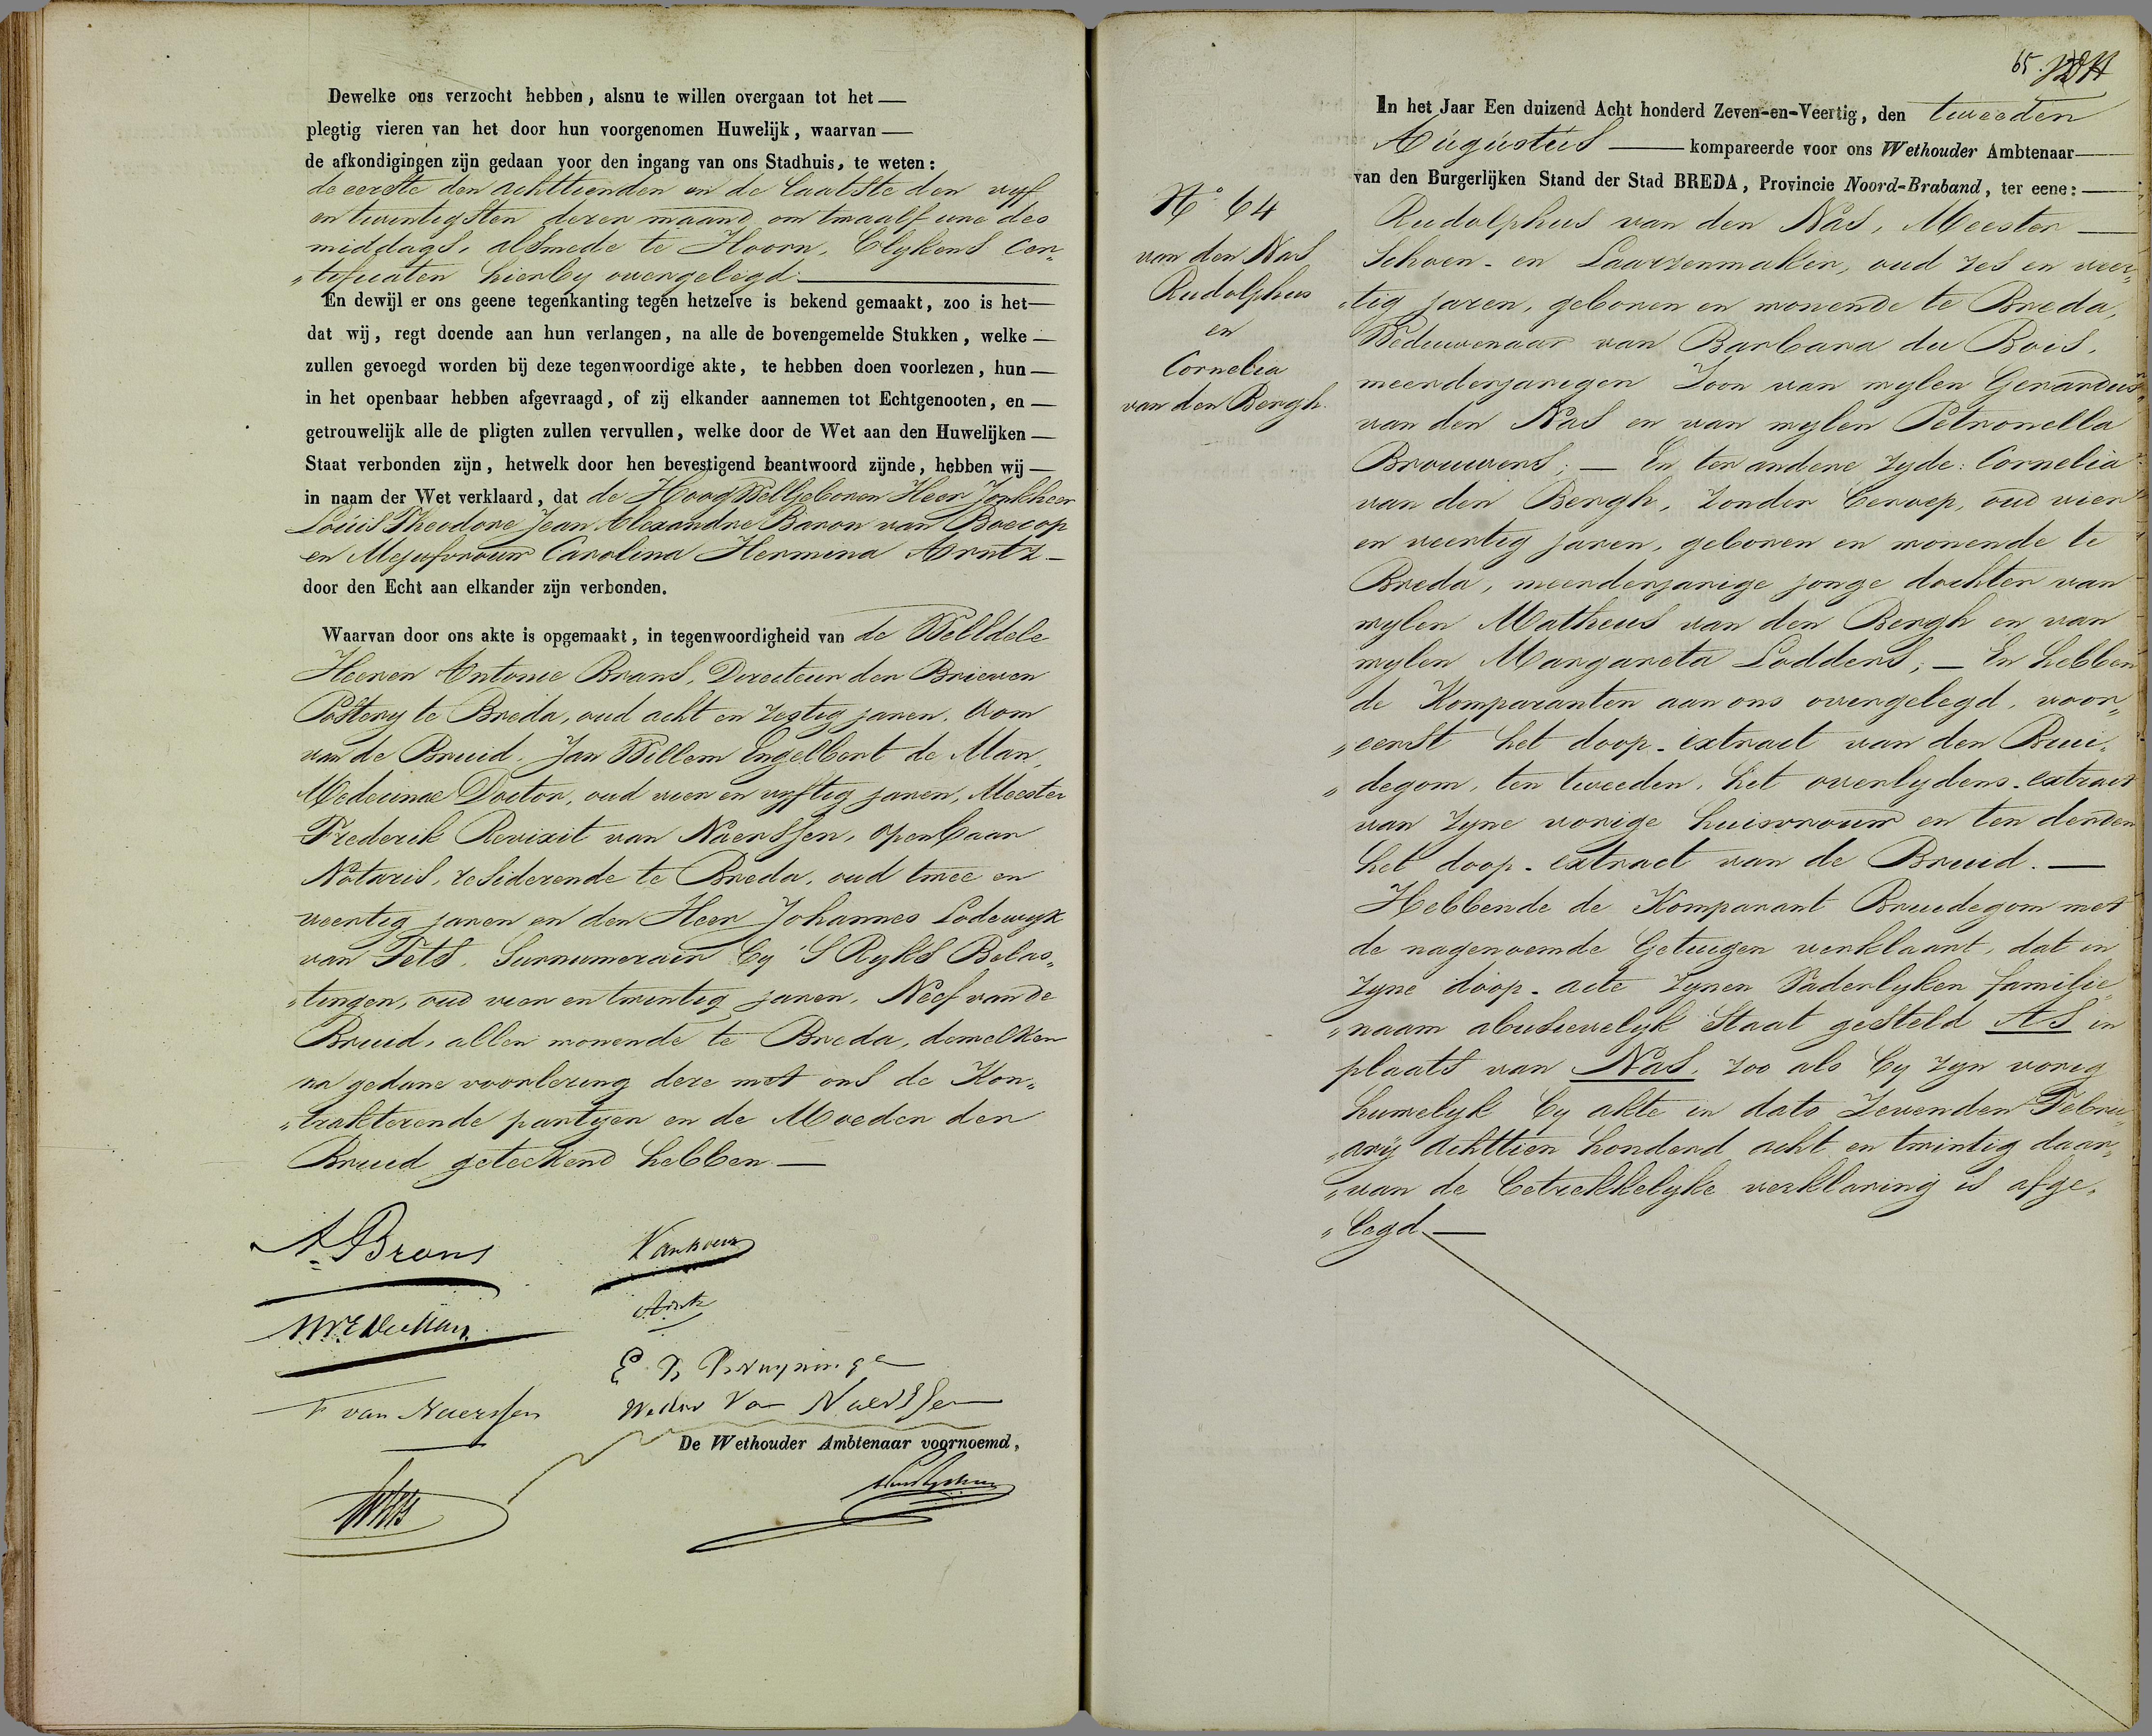 Dewelke ons verzocht hebben, alsnu te willen overgaan tot het —
plegtig vieren van het door hun voorgenomen Huwelijk, waarvan —
de afkondigingen zijn gedaan voor den ingang van ons Stadhuis, te weten:
de eerste den achttienden en de laatste den vyf
en twintigsten dezer maand om twaalf ure des
middags, alsmede te Hoorn, blykens Cer„
„tificaten hierby overgelegd. —
En dewijl er ons geene tegenkanting tegen hetzelve is bekend gemaakt, zoo is het —
dat wij, regt doende aan hun verlangen, na alle de bovengemelde Stukken, welke —
zullen gevoegd worden bij deze tegenwoordige akte, te hebben doen voorlezen, hun —
in het openbaar hebben afgevraagd, of zij elkander aannemen tot Echtgenooten, en —
getrouwelijk alle de pligten zullen vervullen, welke door de Wet aan den Huwelijken —
Staat verbonden zijn, hetwelk door hen bevestigend beantwoord zijnde, hebben wij —
in naam der Wet verklaard, dat de Hoog WelGeboren Heer Jonkheer
Louis Theodore Jean Alexandre Baron van Boecop
en Mejufvrouw Carolina Hermina Arntz —
door den Echt aan elkander zijn verbonden.
Waarvan door ons akte is opgemaakt, in tegenwoordigheid van de WelEdele
Heeren Antonie Brans, Directeur der Brieven
Postery te Breda, oud acht en zestig jaren, Oom
van de Bruid, Jan Willem Engelbert de Man,
Medecinae Doctor, oud vier en vyftig jaren, Meester
Frederik Revixit van Naerssen, openbaar
Notaris, residerende te Breda, oud twee en
veertig jaren en den Heer Johannes Lodewyk
van Fets, Surnumerair by 'S Ryks Belas„
„tingen, oud vier en twintig jaren, Neef van de
Bruid, allen wonende te Breda, dewelken
na gedane voorlezing deze met ons de Kon„
„trakterende partyen en de Moeder der
Bruid geteekend hebben —
A. Brans
Arntz
F van Naerssen
Van Naerssen
De Wethouder Ambtenaar voornoemd,
65.
In het Jaar Een duizend Acht honderd Zeven-en-Veertig, den tweeden
Augustus — kompareerde voor ons Wethouder Ambtenaar —
van den Burgerlijken Stand der Stad BREDA, Provincie Noord-Braband, ter eene: —
No. 64
van den Nas
Rudolphus
en
Cornelia
van den Bergh.
Rudolphus van den Nas, Meester —
Schoen- en Laarzenmaker, oud zes en veer„
„tig jaren, geboren en wonende te Breda,
Weduwenaar van Barbara du Bois,
meerderjarigen Zoon van wylen Gerardus
van den Nas en van wylen Petronella
Brouwers; — En ter andere zyde: Cornelia
van den Bergh, zonder beroep, oud vier
en veertig jaren, geboren en wonende te
Breda, meerderjarige jonge dochter van
wylen Matheus van den Bergh en van
wylen Margareta Lodders; — En hebben
de Komparanten aan ons overgelegd, voor„
„eerst het doop-extract van den Brui„
„degom, ten tweeden, het overlydens-extract
van zyne vorige huisvrouw en ten derden
het doop-extract van de Bruid. —
Hebbende de Komparant Bruidegom met
de nagenoemde Getuigen verklaart, dat in
zyne doop-acte zynen Vaderlyken familie„
„naam abusievelyk Staat gesteld AS in
plaats van Nas, zoo als by zyn vorig
huwelyk by akte in dato Zevenden Febru„
„ary achttien honderd acht en twintig daar„
„van de betrekkelyke verklaring is afge„
„legd —